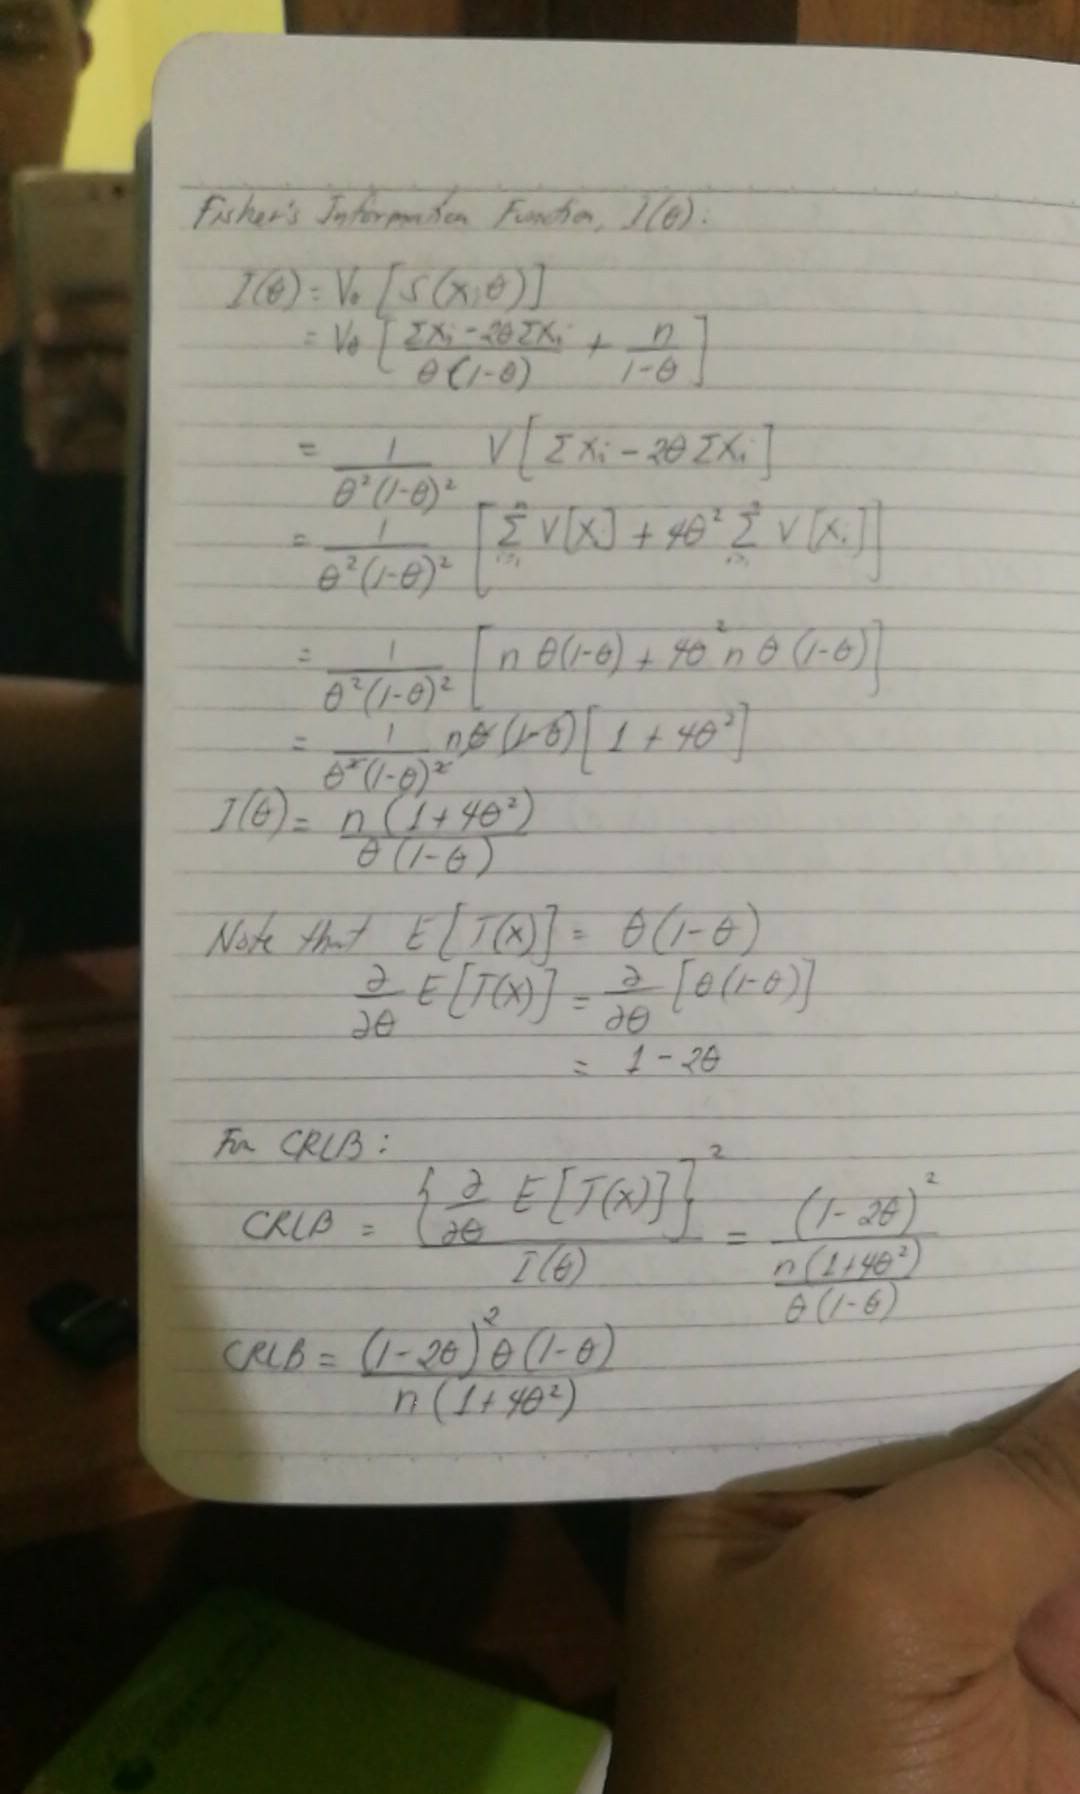 Fisher's Information Function, I(θ):
I(θ) = Vθ [S(x;θ)]
= Vθ [ (ΣXi - 2θΣXi)/(θ(1-θ)) + n/(1-θ) ]
= 1/(θ²(1-θ)²) V[ΣXi - 2θΣXi]
= 1/(θ²(1-θ)²) [Σⁿᵢ₌₁ V[Xi] + 4θ² Σⁿᵢ₌₁ V[Xi]]
= 1/(θ²(1-θ)²) [nθ(1-θ) + 4θ²nθ(1-θ)]
= 1/(θ²(1-θ)²) nθ(1-θ)[1 + 4θ²]
I(θ) = n(1+4θ²)/(θ(1-θ))
Note that E[T(X)] = θ(1-θ)
∂/∂θ E[T(X)] = ∂/∂θ [θ(1-θ)]
= 1 - 2θ
For CRLB:
CRLB = {∂/∂θ E[T(X)]}²/I(θ) = (1-2θ)²/(n(1+4θ²)/(θ(1-θ)))
CRLB = (1-2θ)²θ(1-θ)/(n(1+4θ²))